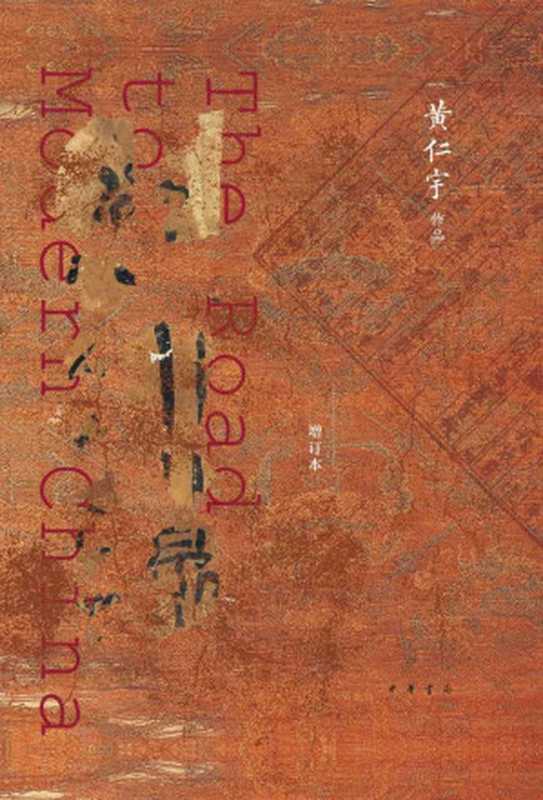 The Road
to
Modern China
黄仁宇
作品
增订本
中华书局